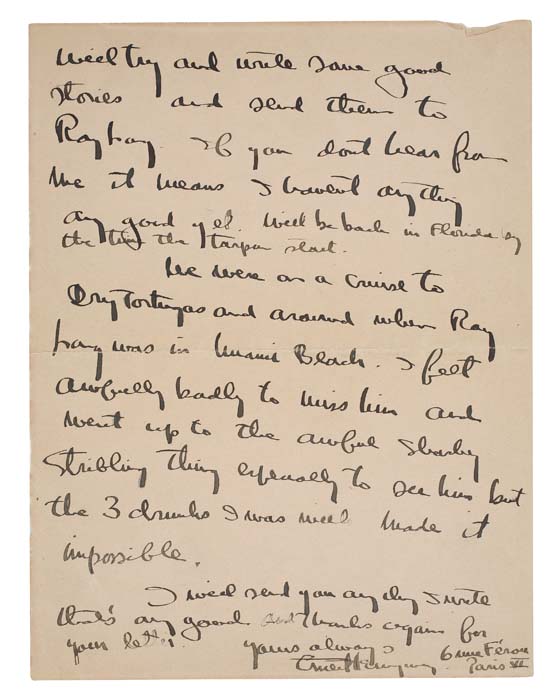 Will try and write some good
stories and send them to
Ray Long. If you dont hear from
me it means I havent anything
any good yet. Will be back in Florida by
the time the tarpon start.
We were on a cruise to
Dry Tortugas and around when Ray
Long was in Miami Beach. I felt
awfully badly to miss him and
went up to the awful Sharkey
Stribling thing especially to see him but
the 3 drunks I was with made it
impossible.
I will send you anything I write
that's any good and thanks again for
your letter.
yours always
Ernest Hemingway.
6 rue Férou
Paris VI